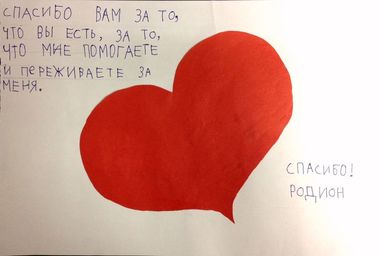 СПАСИБО ВАМ ЗА ТО,
ЧТО ВЫ ЕСТЬ, ЗА ТО,
ЧТО МНЕ ПОМОГАЕТЕ
И ПЕРЕЖИВАЕТЕ ЗА
МЕНЯ.
СПАСИБО!
РОДИОН